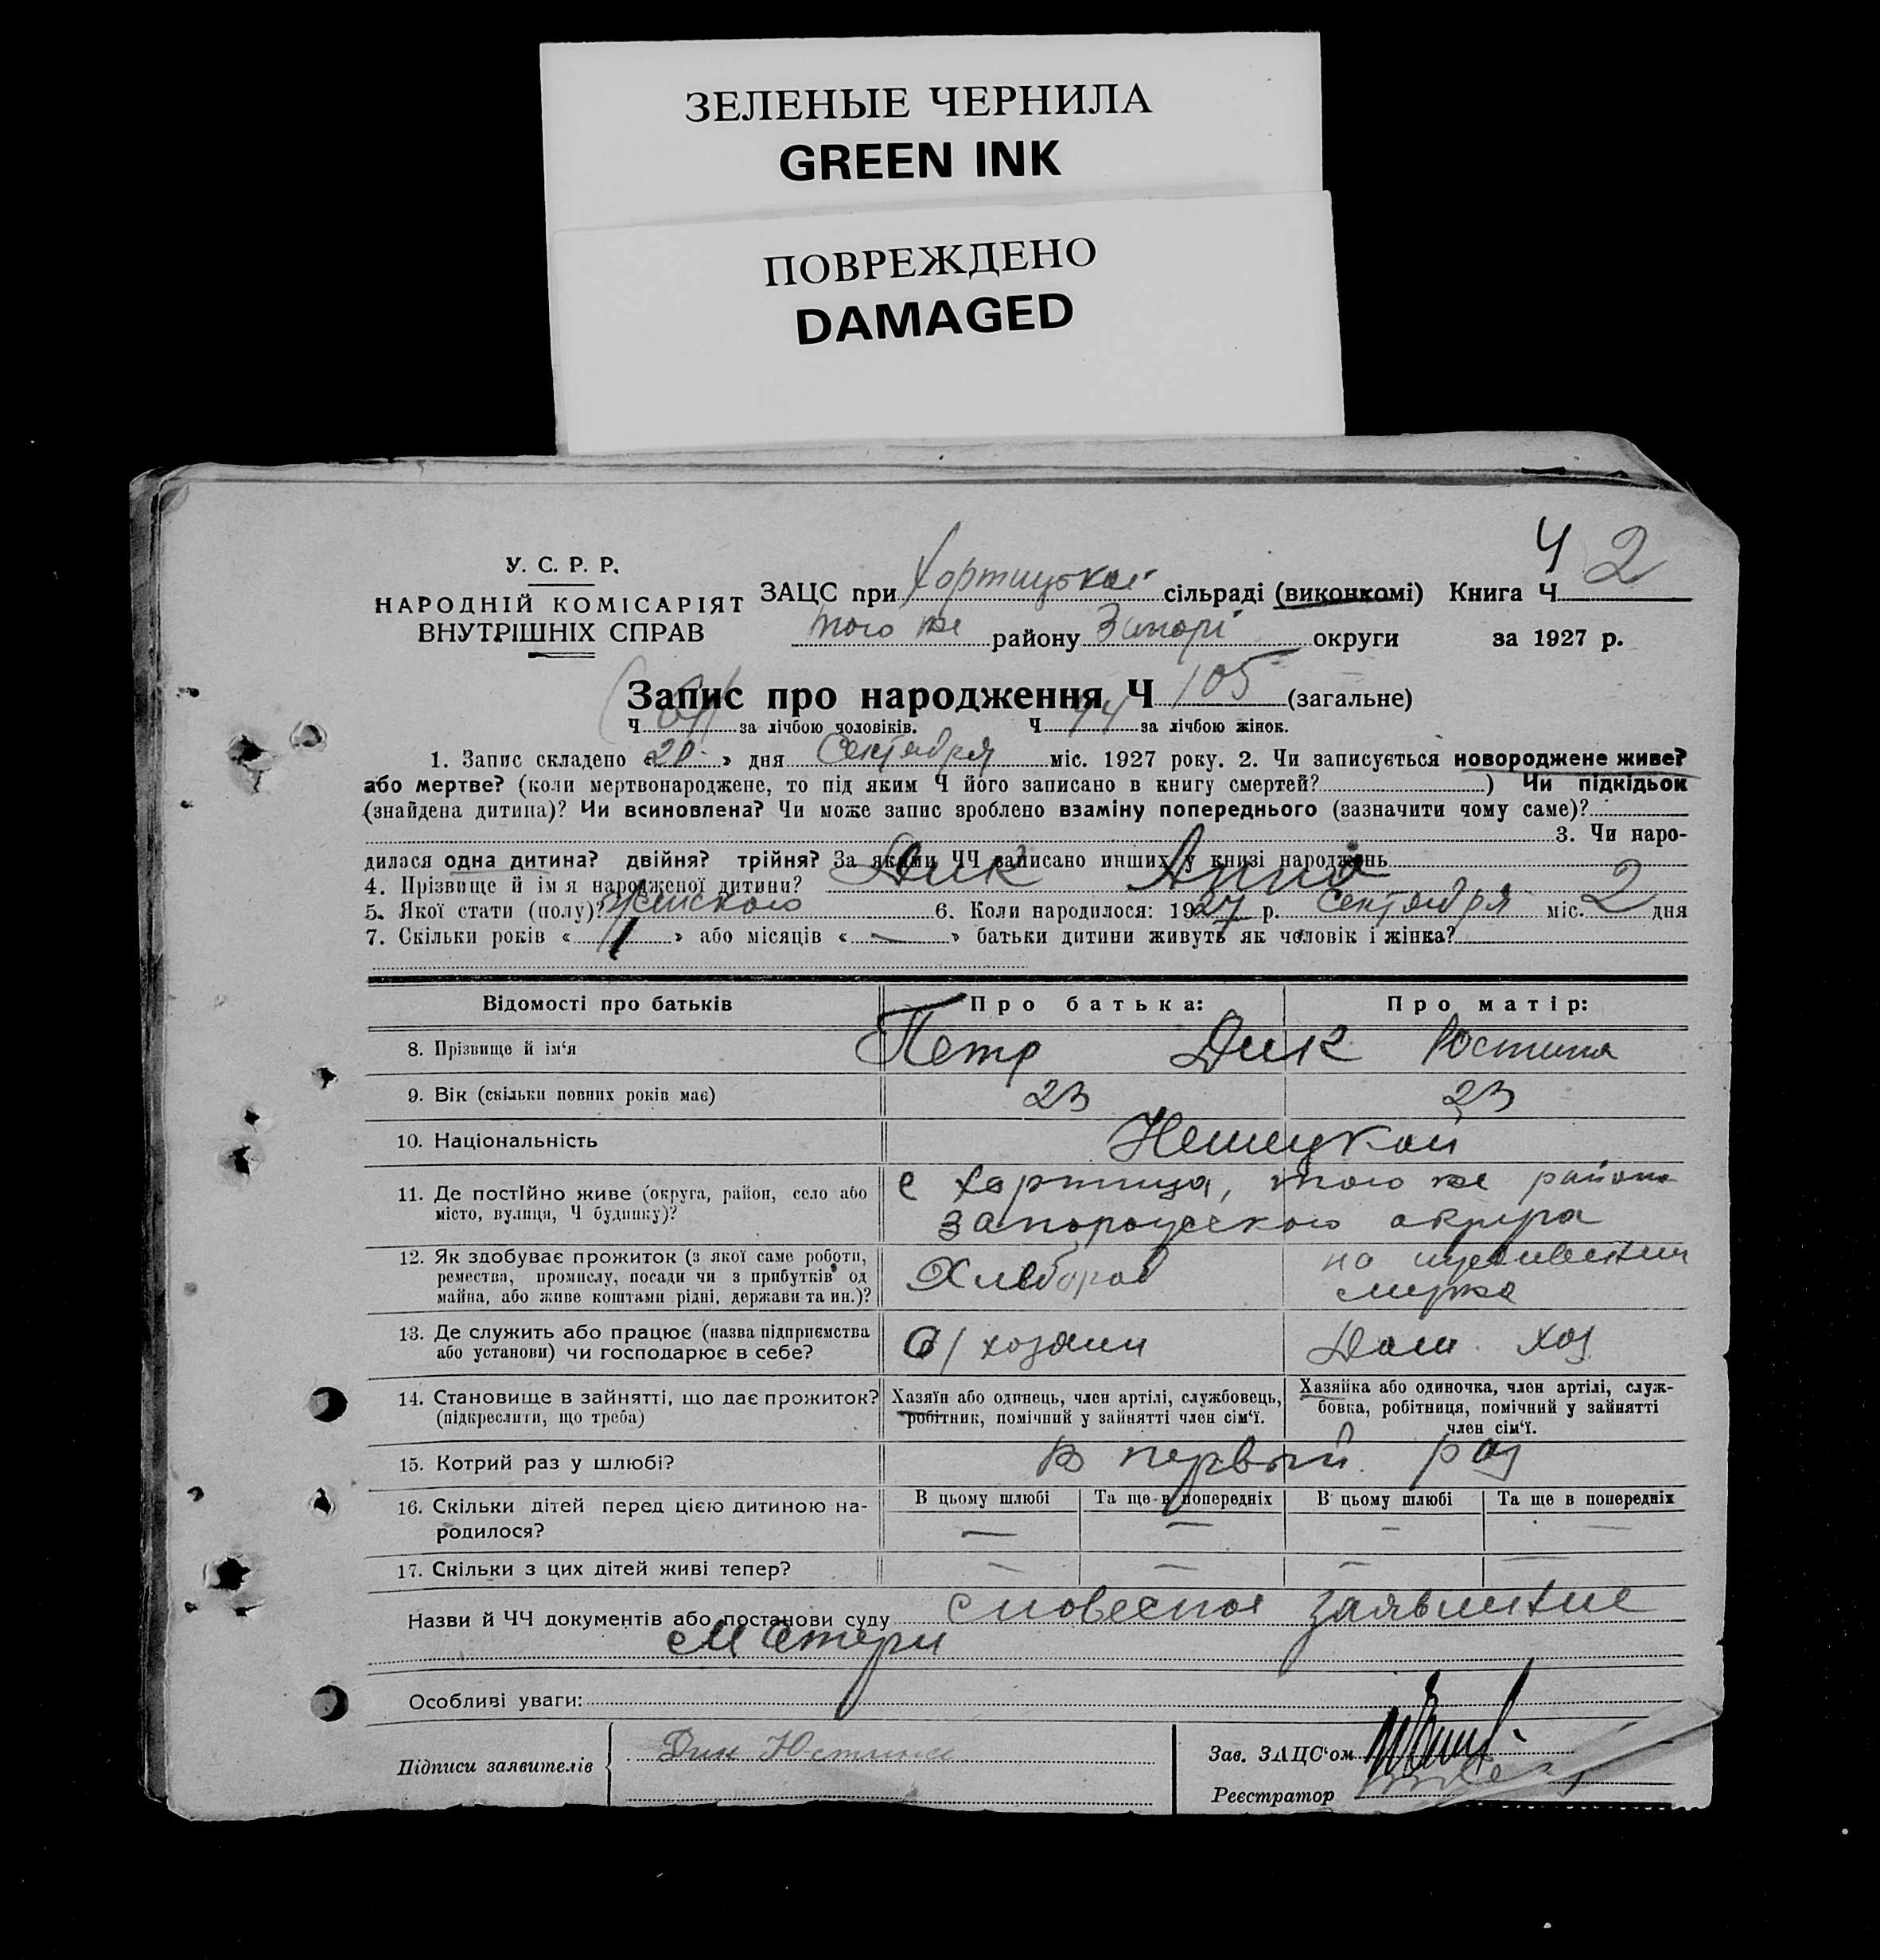 ЗЕЛЕНЫЕ ЧЕРНИЛА
GREEN INK
ПОВРЕЖДЕНО
DAMAGED
Ч 2
У. С. Р. Р.
НАРОДНІЙ КОМІСАРІЯТ
ВНУТРІШНІХ СПРАВ
ЗАЦС при Хортицькой сільраді (виконкомі) Книга Ч
того же району Запорі округи за 1927 р.
Запис про народження Ч 105 (загальне)
Ч 61 за лічбою чоловіків. Ч 44 за лічбою жінок.
1. Запис складено «20» дня Сентября міс. 1927 року. 2. Чи записується новороджене живе?
або мертве? (коли мертвонароджене, то під яким Ч його записано в книгу смертей? ) Чи підкідьок
(знайдена дитина)? Чи всиновлена? Чи може запис зроблено взаміну попереднього (зазначити чому саме)?
3. Чи наро-
дилася одна дитина? двійня? трійня? За якими ЧЧ записано инших у книзі народжень
4. Прізвище й ім я народженої дитини? Дик Анна
5. Якої стати (полу)? Женского 6. Коли народилося: 1927 р. Сентября міс. 2 дня
7. Скільки років « 1 » або місяців « — » батьки дитини живуть як чоловік і жінка?
Відомості про батьків Про батька: Про матір:
8. Прізвище й ім'я Петр Дик Юстина
9. Вік (скільки повних років має) 23 23
10. Національність Немецкой
11. Де постійно живе (округа, район, село або
місто, вулиця, Ч будинку)?
с Хортица, того же района
Запорожского округа
12. Як здобуває прожиток (з якої саме роботи,
ремества, промислу, посади чи з прибутків од
майна, або живе коштами рідні, держави та ин.)?
Хлебороб
на иждивении
мужа
13. Де служить або працює (назва підприємства
або установи) чи господарює в себе?
С/хозяин
Дом. хоз
14. Становище в зайнятті, що дає прожиток?
(підкреслити, що треба)
Хазяїн або одинець, член артілі, службовець,
робітник, помічний у зайнятті член сім'ї.
Хазяйка або одиночка, член артілі, служ-
бовка, робітниця, помічний у зайнятті
член сім'ї.
15. Котрий раз у шлюбі? В первый раз
16. Скільки дітей перед цією дитиною на-
родилося?
В цьому шлюбі Та ще в попередніх В цьому шлюбі Та ще в попередніх
— — — —
17. Скільки з цих дітей живі тепер? — — — —
Назви й ЧЧ документів або постанови суду словесное заявление
матери
Особливі уваги:
Підписи заявителів Дик Юстина
Зав. ЗАЦС'ом
Реєстратор